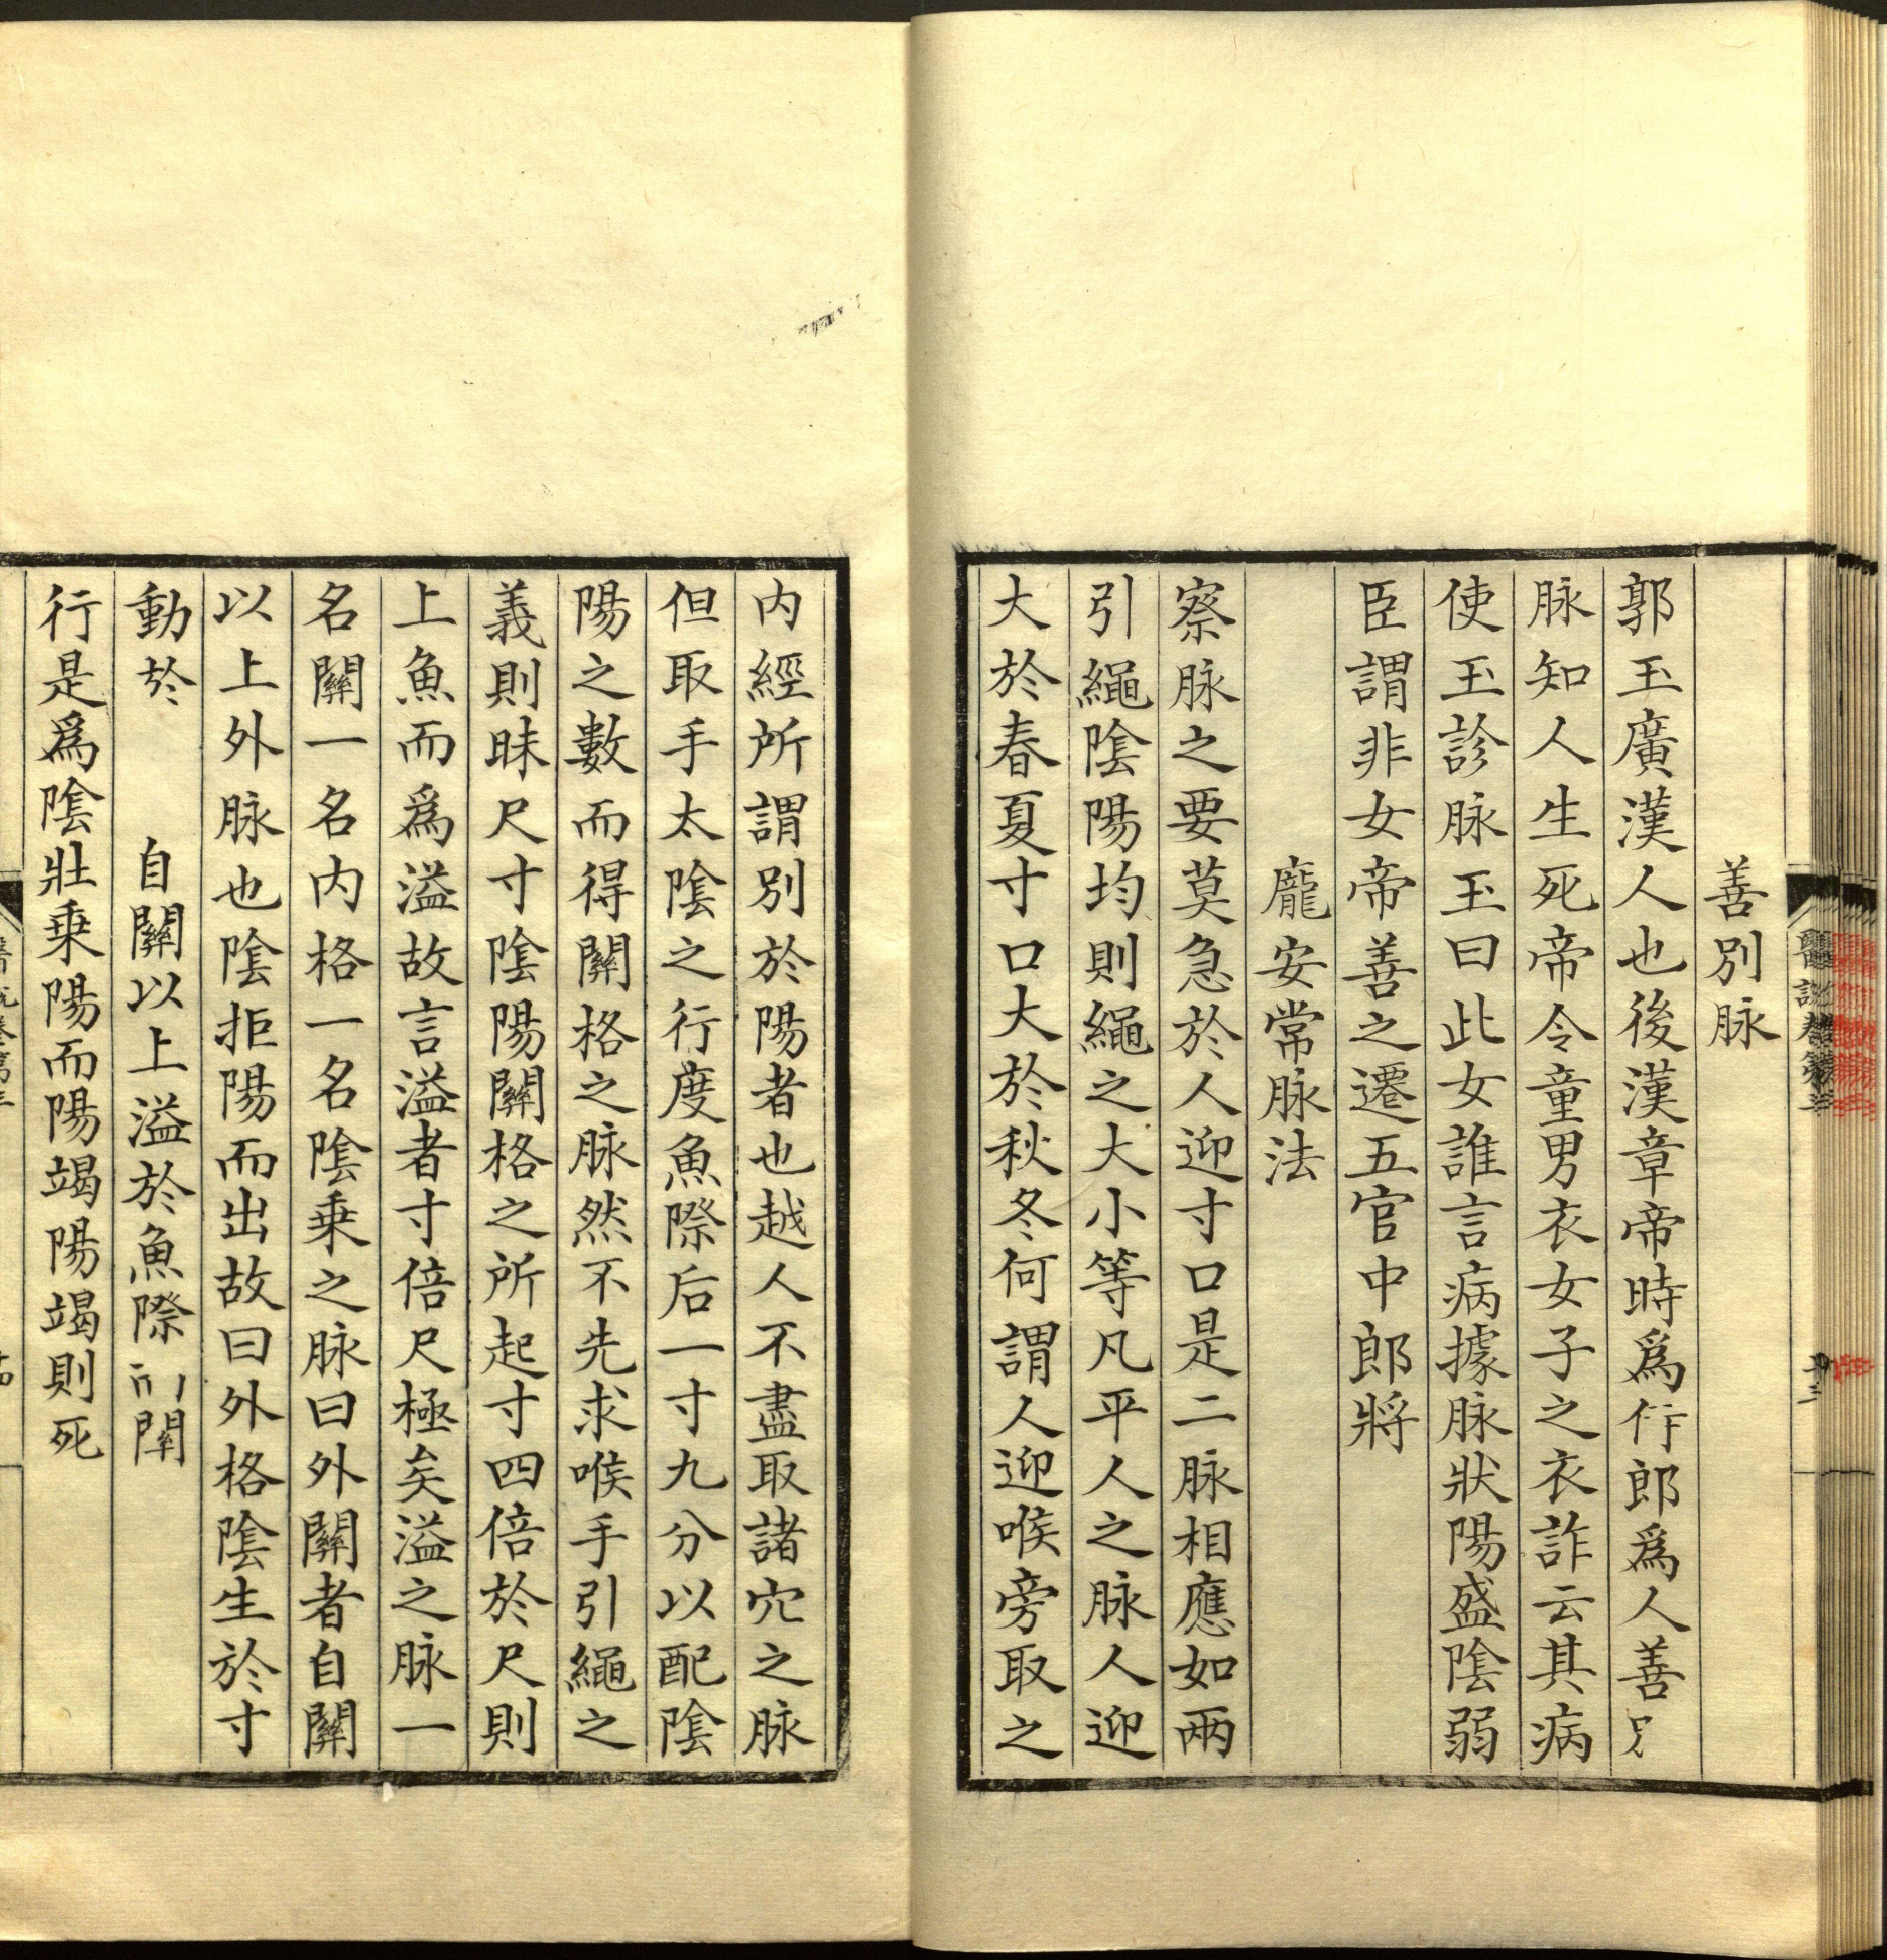 善別脉
郭玉廣漢人也後漢章帝時爲郎爲人善
脉知人生死帝令童男衣女子之衣詐云其病
使玉診脉玉曰此女誰言病據脉狀陽盛陰弱
臣謂非女帝善之遷五官中郎將
龐安常脉法
察脉之要莫急於人迎寸口是二脉相應如兩
引繩陰陽均則繩之大小等凡平人之脉人迎
大於春夏寸口大於秋冬何謂人迎喉旁取之
內經所謂別於陽者也越人不盡取諸穴之脉
但取手太陰之行度魚際后一寸九分以配陰
陽之數而得關格之脉然不先求喉手引繩之
義則昧尺寸陰陽關格之所起寸四倍於尺則
上魚而爲溢故言溢者寸倍尺極矣溢之脉一
名關一名內格一名陰乗之脉曰外關者自關
以上外脉也陰拒陽而出故曰外格陰生於寸
動於 自關以上溢於魚際
行是爲陰壯乗陽而陽竭陽竭則死